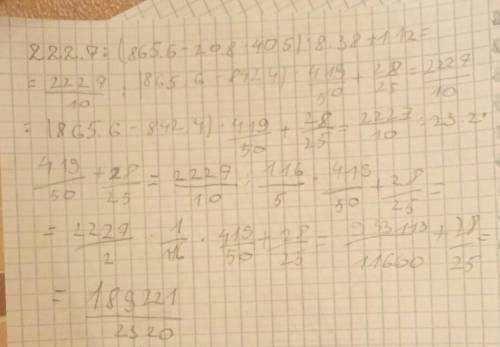 222.7 : (865.6 - 20.8 · 40.5) · 8.38 + 1.12 =
= 2227/10 : (865.6 - 842.4) · 419/50 + 28/25 = 2227/10
= (865.6 - 842.4) · 419/50 + 28/25 = 2227/10 : 23.2 ·
419/50 + 28/25 = 2227/10 : 116/5 · 419/50 + 28/25 =
= 2227/2 · 1/116 · 419/50 + 28/25 = 933113/11600 + 28/25 =
= 189221/2320